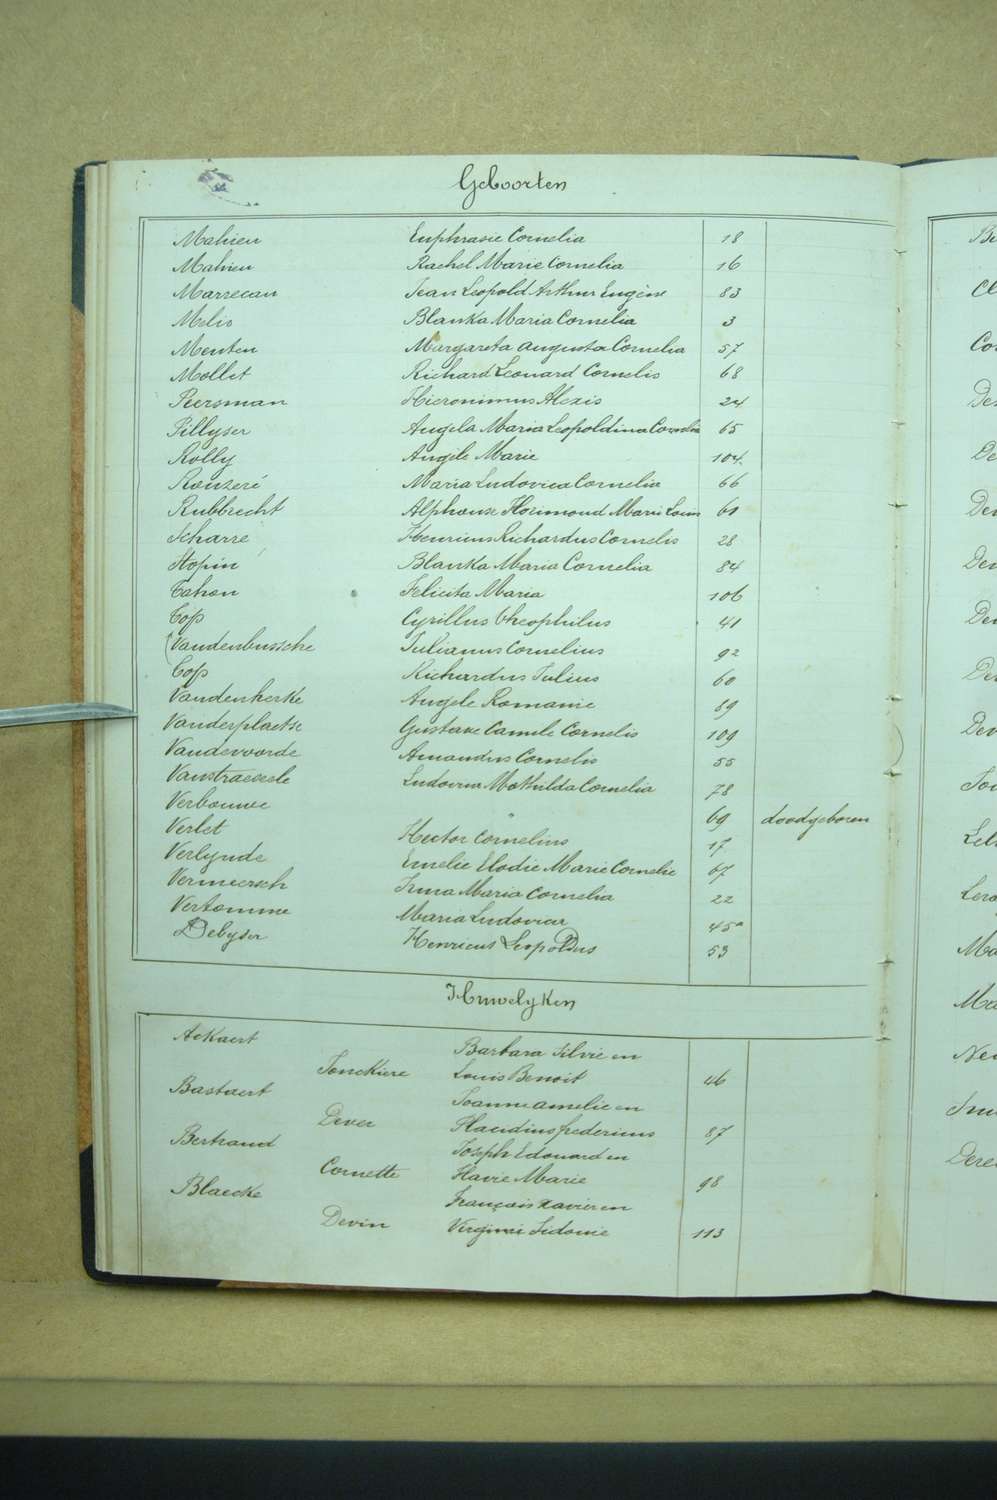 Geboorten
Mahieu Euphrasie Cornelia 18
Mahieu Rachel Marie Cornelia 16
Marrecau Jean Leopold Arthur Eugène 83
Melis Blanka Maria Cornelia 3
Menten Margareta Augusta Cornelia 57
Mollet Richard Leonard Cornelis 68
Peersman Hieronimus Alexis 24
Pillyser Angela Maria Leopoldina Cornelia 65
Rolly Angele Marie 104
Rouzeré Maria Ludovica Cornelia 66
Rubbrecht Alphonse Florimond Marie Louis 61
Scharre Henricus Richardus Cornelis 28
Stopin Blanka Maria Cornelia 84
Tahon Felicita Maria 106
Top Cyrillus Theophilus 41
Vandenbussche Julianus Cornelius 92
Top Richardus Julius 60
Vandenkerke Angele Romanie 89
Vanderplaetse Gustave Camile Cornelis 109
Vandevoorde Amandus Cornelis 55
Vanstraeseele Ludovica Mathilda Cornelia 78
Verbouwe " 69 doodgeboren
Verlet Hector Cornelius 17
Verlynde Emelie Elodie Marie Cornelie 67
Vermeersch Irma Maria Cornelia 22
Vertomme Maria Ludovica 45
Debyser Henricus Leopoldus 53
Huwelyken
Ackaert Barbara Silvie en
Tonckiere Louis Benoit 46
Bastaert Joanne Amelie en
Dever Placidius fredericus 87
Bertrand Joseph Edouard en
Cornette Flavie Marie 98
Blaecke François Xavier en
Devin Virginie Sidonie 113
Be
Cl
Co
De
De
De
De
De
De
De
Le
Le
Ma
Ma
Ne
Dere